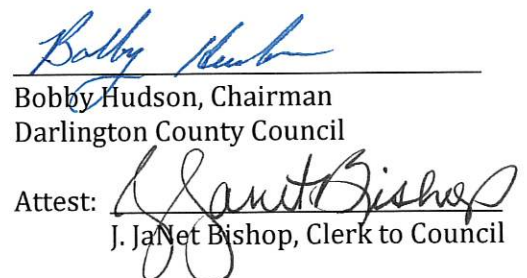 Bobby Hudson
Bobby Hudson, Chairman
Darlington County Council
Attest: J JaNet Bishop
J. JaNet Bishop, Clerk to Council